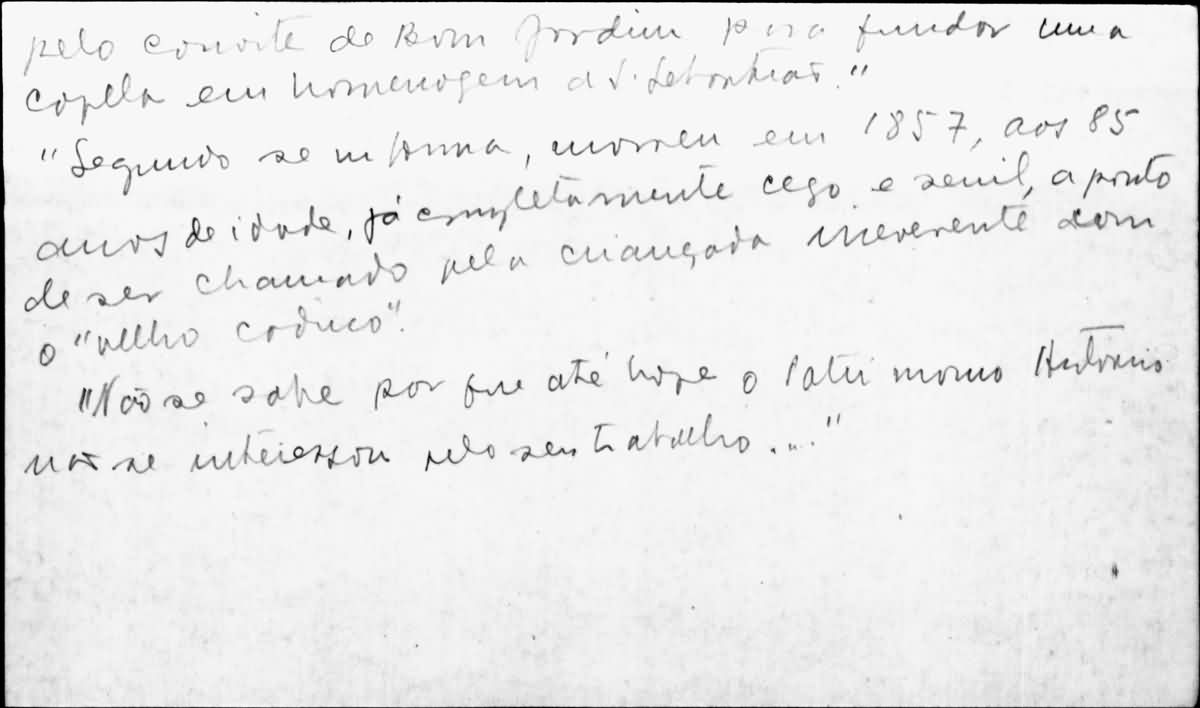 pelo convite de Bom Jardim para fundar uma
capella em homenagem a S. Sebastião."
"Segundo se informa, morreu em 1857, aos 85
anos de idade, já completamente cego e senil, a ponto
de ser chamado pela criançada irreverente com
o "velho caduco".
"Não se sabe por que até hoje o Patrimonio Historico
não se interessou pelo seu trabalho...."